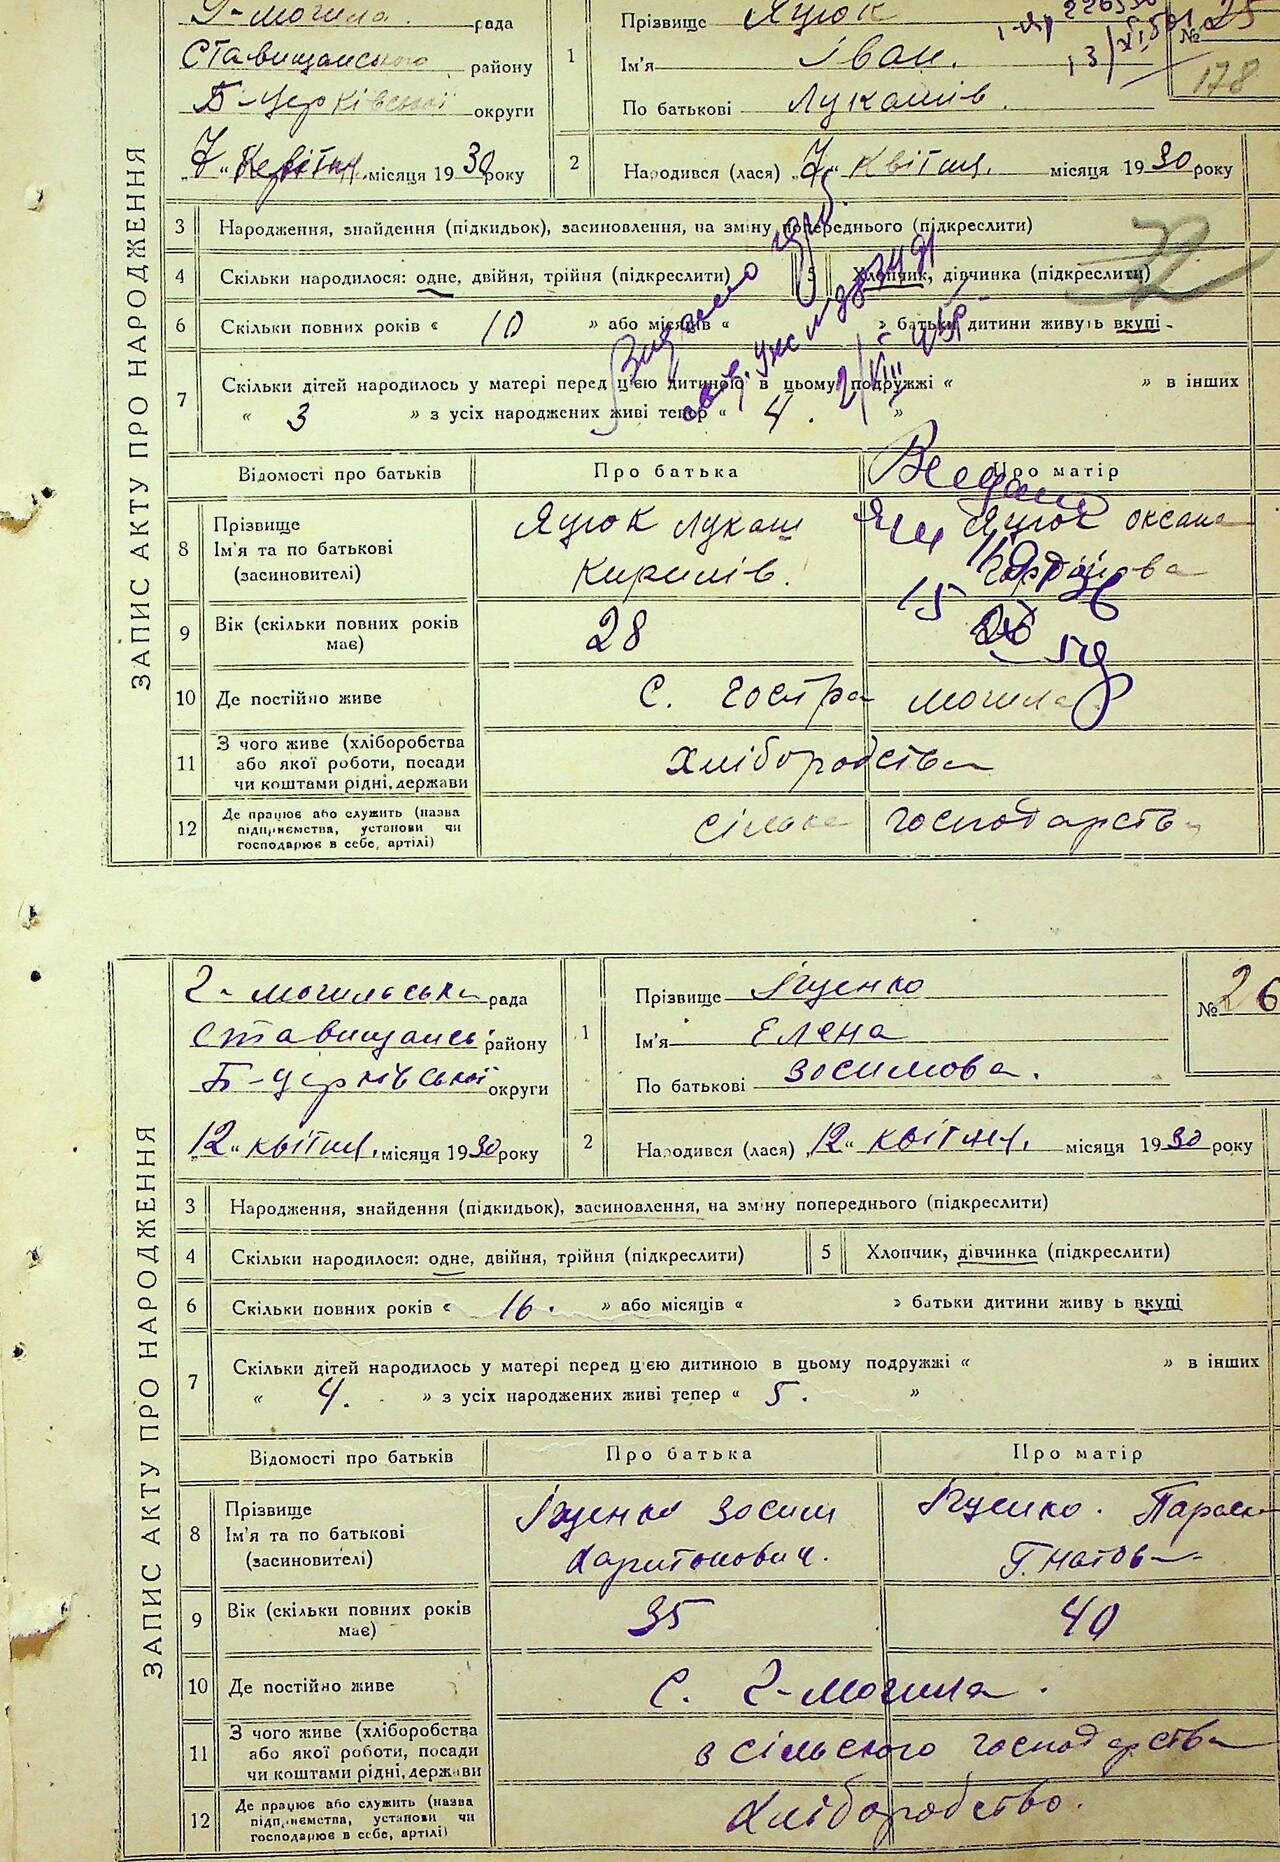 Г-могила рада
Ставищанського району
Б-Церківської округи
"7" Квітня місяця 1930 року
1
Прізвище Яцюк
Ім'я Іван.
По батькові Лукашів.
№ 25
178
2
Народився (лася) "7" Квітня. місяця 1930 року
ЗАПИС АКТУ ПРО НАРОДЖЕННЯ
3 Народження, знайдення (підкидьок), засиновлення, на зміну попереднього (підкреслити)
4 Скільки народилося: одне, двійня, трійня (підкреслити) 5 Хлопчик, дівчинка (підкреслити)
6 Скільки повних років « 10 » або місяців « » батьки дитини живуть вкупі.
7 Скільки дітей народилось у матері перед цією дитиною в цьому подружжі « » в інших
« 3 » з усіх народжених живі тепер « 4. »
Відомості про батьків Про батька Про матір
8 Прізвище
Ім'я та по батькові
(засиновителі)
Яцюк Лукаш
Кирилів.
Яцюк Оксана
9 Вік (скільки повних років
має)
28
10 Де постійно живе с. Гостра могила
11 З чого живе (хліборобства
або якої роботи, посади
чи коштами рідні, держави
хлібородства
12 Де працює або служить (назва
підприємства, установи чи
господарює в себе, артілі)
сільске господарства
Г-могильська рада
Ставищансь району
Б-Церківської округи
"12" квітня. місяця 1930 року
1
Прізвище Яценко
Ім'я Елена
По батькові Зосимова.
№ 26
2
Народився (лася) "12" квітня. місяця 1930 року
ЗАПИС АКТУ ПРО НАРОДЖЕННЯ
3 Народження, знайдення (підкидьок), засиновлення, на зміну попереднього (підкреслити)
4 Скільки народилося: одне, двійня, трійня (підкреслити) 5 Хлопчик, дівчинка (підкреслити)
6 Скільки повних років « 16. » або місяців « » батьки дитини живу ь вкупі
7 Скільки дітей народилось у матері перед цією дитиною в цьому подружжі « » в інших
« 4. » з усіх народжених живі тепер « 5. »
Відомості про батьків Про батька Про матір
8 Прізвище
Ім'я та по батькові
(засиновителі)
Яценко Зосим
Харитонович.
Яценко. Параск
Гнатов
9 Вік (скільки повних років
має)
35 40
10 Де постійно живе с. Г-могила.
11 З чого живе (хліборобства
або якої роботи, посади
чи коштами рідні, держави
з сільского господарства
12 Де працює або служить (назва
підприємства, установи чи
господарює в себе, артілі)
хлібородство.